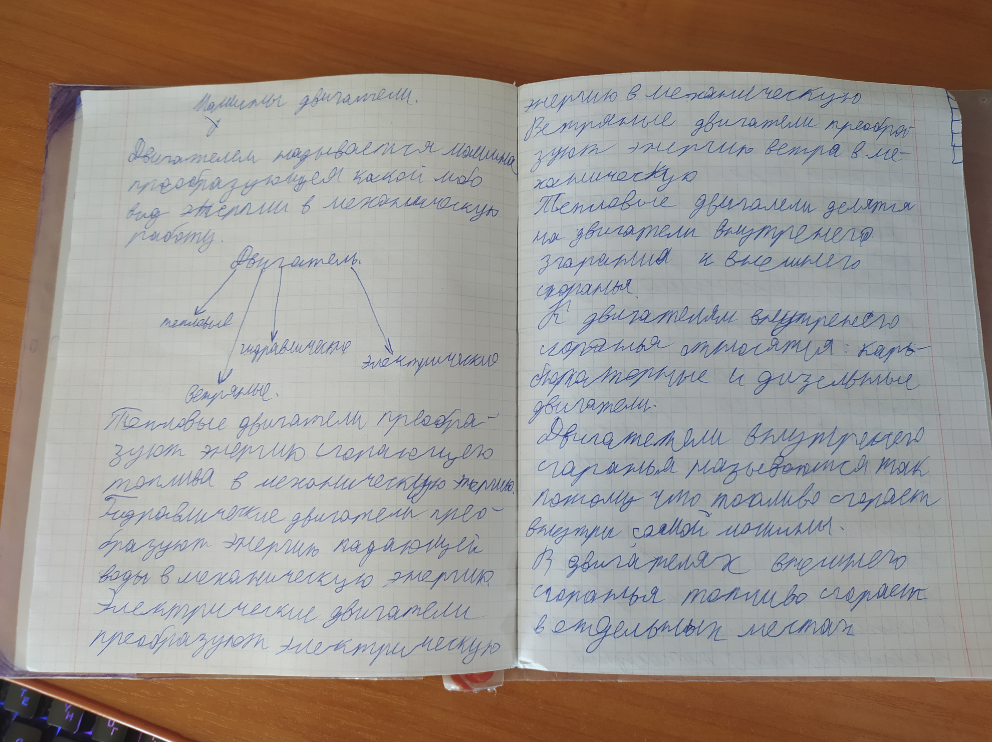 Машины двигатели.
Двигателем называется машина
преобразующея какой либо
вид энергии в механическую
работу.
Двигатель.
тепловые
гидравнические
электрические
ветряные.
Тепловые двигатели преобра-
зуют энергию сгорающего
топлива в механическую энергию.
Гидравлические двигатель прео-
бразуют энергию падающей
воды в механическую энергию
Электрические двигатели
преобразуют электрическую
энергию в механическую
Ветряные двигатели преобра-
зуют энергию ветра в ме-
ханическую
Тепловые двигалели делятся
на двигатели внутренего
згарания и внешнего
сгоранья.
К двигателям внутренего
сгоранья относятся: карь-
бюраторные и дизельные
двигатели.
Двигатетели внутренего
сгаранья называются так
потому что топливо сгорает
внутри самой машины.
В двигателях внешнего
сгоранья топливо сгорает
в отдельных местах